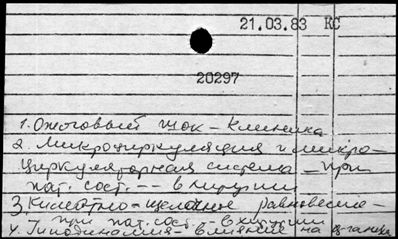 21.03.83 КС
20297
1. Ожоговый шок – клиника
2. Микроциркуляция и микро-
циркуляторная система – при
пат. сост. -- в хирургии
3. Кислотно-щелочное равновесие –
при пат. сост. – в хирургии
4. Гиподинамия – влияние на организм